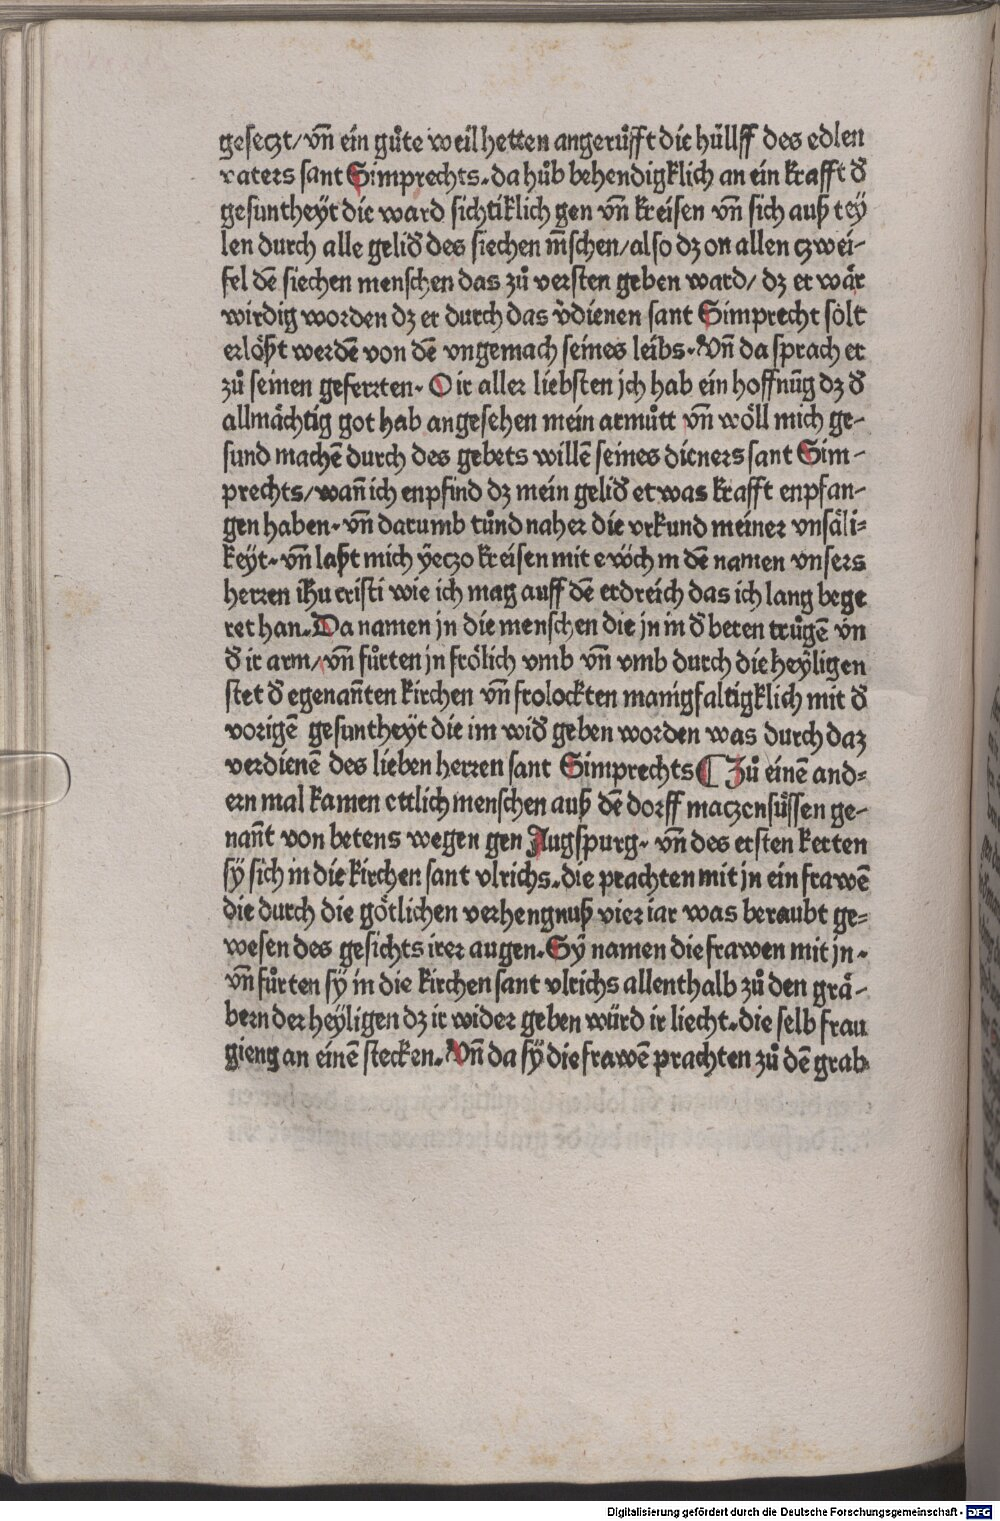 gesetzt/ vñ ein gůte weil hetten angerůfft die hüllff des edlen
vaters sant Simprechts. da hůb behendigklich an ein krafft d̕
gesuntheÿt die ward sichtiklich gen vñ kreisen vñ sich auß teÿ
len durch alle gelid̕ des siechen m̃schen/ also dz on allen czwei-
fel dẽ siechen menschen das zů versten geben ward/ dz er wår
wirdig worden dz er durch das v̕dienen sant Simprecht sölt
erlößt werdẽ von dẽ vngemach seines leibs. Vñ da sprach er
zů seinen geferrten. O ir aller liebsten jch hab ein hoffnũg dz d̕
allmåchtig got hab angesehen mein armůtt vñ wöll mich ge-
sund machẽ durch des gebets willẽ seines dieners sant Sim-
prechts/ wañ ich enpfind dz mein gelid̕ etwas krafft enpfan-
gen haben. vñ darumb tůnd naher die vrkund meiner vnsåli-
keÿt. vñ laßt mich ÿeczo kreisen mit ewch in dẽ namen vnsers
herren ihu cristi wie ich mag auff dẽ erdreich das ich lang bege
ret han. Da namen jn die menschen die jn in d̕ beren trůgẽ vn
d̕ ir arm/ vñ fůrten jn frölich vmb vñ vmb durch die heÿligen
stet d̕ egenañten kirchen vñ frolockten manigfaltigklich mit d̕
vorigẽ gesuntheÿt die im wid̕ geben worden was durch daz
verdienẽ des lieben herren sant Simprechts ¶ Zů einẽ and-
ern mal kamen ettlich menschen auß dẽ dorff maczensüssen ge-
nañt von betens wegen gen Augspurg. vñ des ersten kerten
sÿ sich in die kirchen sant vlrichs. die prachten mit jn ein frawẽ
die durch die götlichen verhengnuß vier iar was beraubt ge-
wesen des gesichts irer augen. Sÿ namen die frawen mit jn.
vñ fůrten sÿ in die kirchen sant vlrichs allenthalb zů den grå-
bern der heÿligen dz ir wider geben würd ir liecht. die selb frau
gieng an einẽ stecken. Vñ da sÿ die frawẽ prachten zů dẽ grab
Digitalisierung gefördert durch die Deutsche Forschungsgemeinschaft - DFG